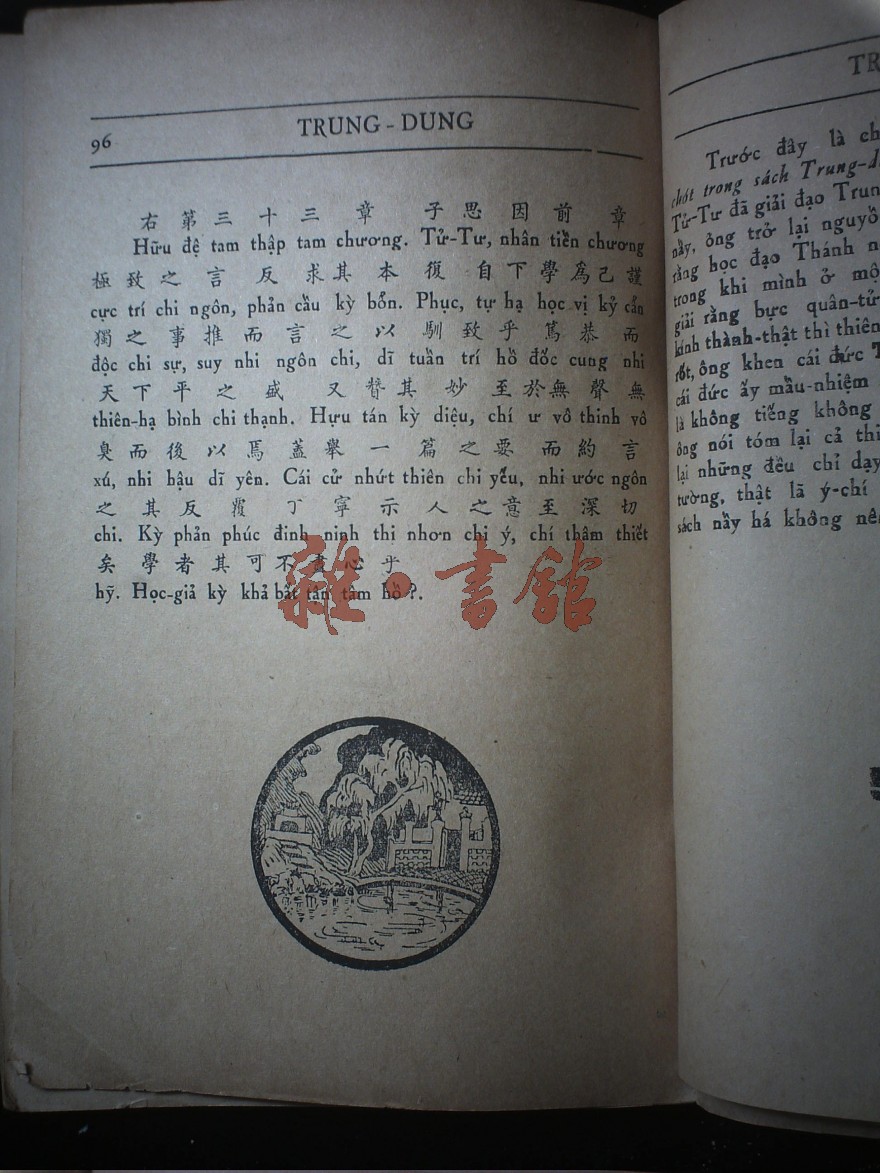 96
TRUNG - DUNG
右第三十三章 子思因前章
Hữu đệ tam thập tam chương. Tử-Tư, nhân tiền chương
極致之言反求其本復自下學爲己謹
cực trí chi ngôn, phản cầu kỳ bổn. Phục, tự hạ học vị kỷ cẩn
獨之事推而言之以馴致乎篤恭而
độc chi sự, suy nhi ngôn chi, dĩ tuần trí hồ đốc cung nhi
天下平之盛又贊其妙至於無聲無
thiên-hạ bình chi thạnh. Hựu tán kỳ diệu, chí ư vô thinh vô
臭而後以焉蓋舉一篇之要而約言
xú, nhi hậu dĩ yên. Cái cử nhứt thiên chi yếu, nhi ước ngôn
之其反覆丁寧示人之意至深切
chi. Kỳ phản phúc đinh ninh thi nhơn chi ý, chí thâm thiết
矣學者其可不盡心乎
hỹ. Học-giả kỳ khả bất tận tâm hồ?.
雜·書館
TR
Trước đây là ch
chót trong sách Trung-d
Tử-Tư đã giải đạo Trun
nầy, ông trở lại nguyồ
rằng học đạo Thánh n
trong khi mình ở mộ
giải rằng bực quân-tử
kính thành-thật thì thiên
rốt, ông khen cái đức T
cái đức ấy mầu-nhiệm
là không tiếng không
ông nói tóm lại cả thi
lại những đều chỉ dạy
tường, thật là ý-chí
sách nầy há không nê